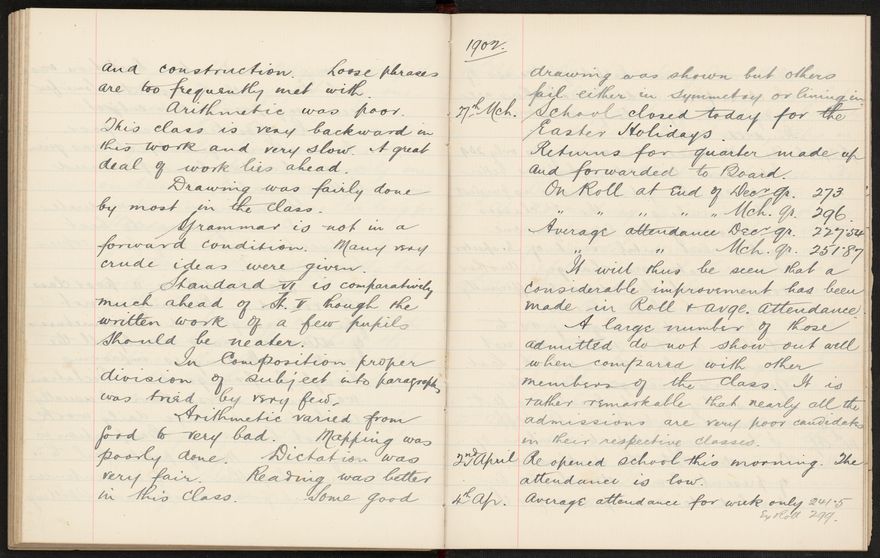 and construction. Loose phrases
are too frequently met with.
Arithmetic was poor.
This class is very backward in
this work and very slow. A great
deal of work lies ahead.
Drawing was fairly done
by most in the class.
Grammar is not in a
forward condition. Many very
crude ideas were given.
Standard VI is comparatively
much ahead of St. V though the
written work of a few pupils
should be neater.
In Composition proper
division of subject into paragraphs
was tried by very few.
Arithmetic varied from
good to very bad. Mapping was
poorly done. Dictation was
very fair. Reading was better
in this class. Some good
1902.
drawing was shown but others
fail either in symmetry or lining in
27th Mch. School closed today for the
Easter Holidays.
Returns for quarter made up
and forwarded to Board.
On Roll at End of Decr qr. 273
" " " " " Mch. qr. 296.
Average attendance Decr qr. 227.54
" " Mch. qr. 251.87
It will thus be seen that a
considerable improvement has been
made in Roll & avge. attendance.
A large number of those
admitted do not show out well
when compared with other
members of the class. It is
rather remarkable that nearly all the
admissions are very poor candidates
in their respective classes.
2nd April Re opened school this morning. The
attendance is low.
4th Ap. Average attendance for week only 241.5
Roll 299.